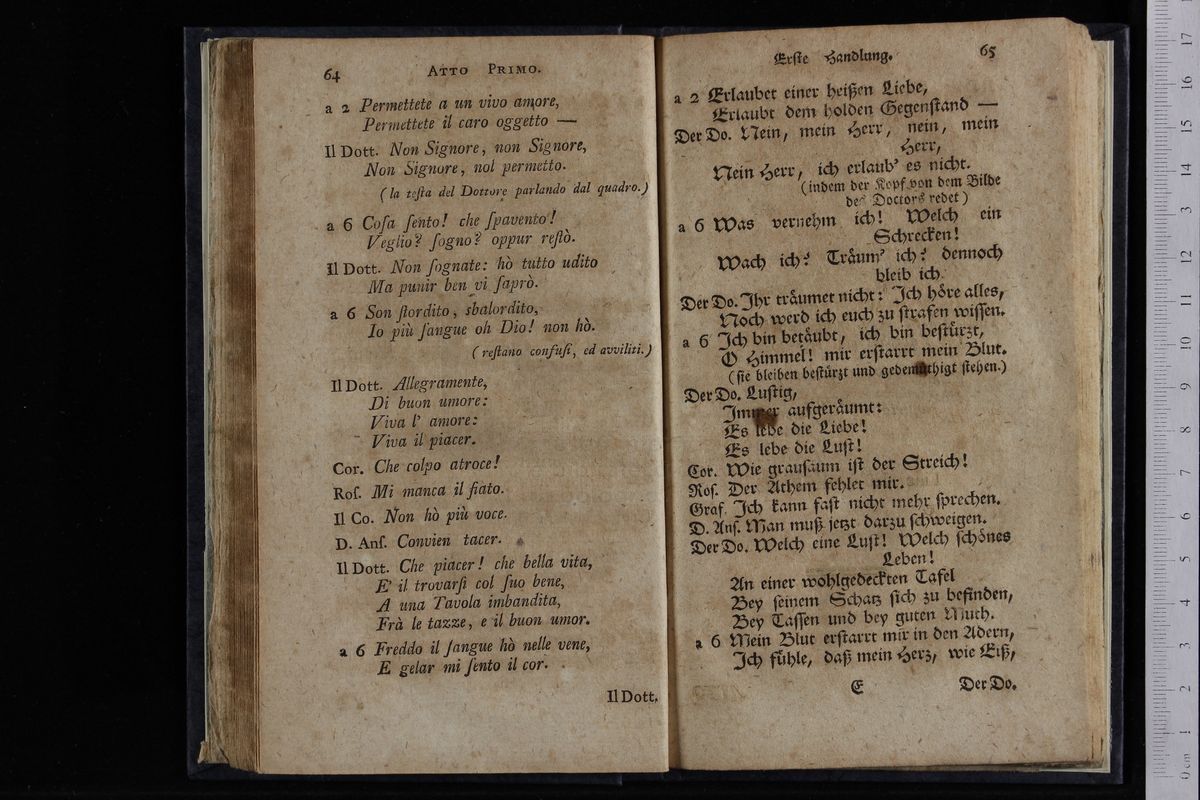 64 ATTO PRIMO.
a 2 Permettete a un vivo amore,
Permettete il caro oggetto —
Il Dott. Non Signore, non Signore,
Non Signore, nol permetto.
(la teſta del Dottore parlando dal quadro.)
a 6 Coſa ſento! che ſpavento!
Veglio? ſogno? oppur reſtò.
Il Dott. Non ſognate: hò tutto udito
Ma punir ben vi ſaprò.
a 6 Son ſtordito, sbalordito,
Io più ſangue oh Dio! non hò.
(reſtano confuſi, ed avviliti.)
Il Dott. Allegramente,
Di buon umore:
Viva l' amore:
Viva il piacer.
Cor. Che colpo atroce!
Roſ. Mi manca il fiato.
Il Co. Non hò più voce.
D. Anſ. Convien tacer.
Il Dott. Che piacer! che bella vita,
E' il trovarſi col ſuo bene,
A una Tavola imbandita,
Frà le tazze, e il buon umor.
a 6 Freddo il ſangue hò nelle vene,
E gelar mi ſento il cor.
Il Dott.
Erſte Handlung. 65
a 2 Erlaubet einer heißen Liebe,
Erlaubt dem holden Gegenſtand —
Der Do. Nein, mein Herr, nein, mein
Herr,
Nein Herr, ich erlaub' es nicht.
(indem der Kopf von dem Bilde
des Doctors redet)
a 6 Was vernehm ich! Welch ein
Schrecken!
Wach ich? Träum' ich? dennoch
bleib ich.
Der Do. Ihr träumet nicht: Ich höre alles,
Noch werd ich euch zu ſtrafen wiſſen.
a 6 Ich bin betäubt, ich bin beſtürzt,
O Himmel! mir erſtarrt mein Blut.
(ſie bleiben beſtürzt und gedemüthigt ſtehen.)
Der Do. Luſtig,
Immer aufgeräumt:
Es lebe die Liebe!
Es lebe die Luſt!
Cor. Wie grauſaum iſt der Streich!
Roſ. Der Athem fehlet mir.
Graf. Ich kann faſt nicht mehr ſprechen.
D. Anſ. Man muß jetzt darzu ſchweigen.
Der Do. Welch eine Luſt! Welch ſchönes
Leben!
An einer wohlgedeckten Tafel
Bey ſeinem Schatz ſich zu befinden,
Bey Taſſen und bey guten Muth.
a 6 Mein Blut erſtarrt mir in den Adern,
Ich fühle, daß mein Herz, wie Eiß,
E Der Do.